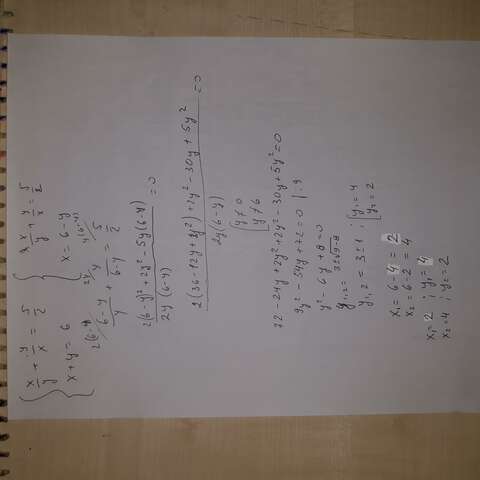 { x/y + y/x = 5/2
x + y = 6
{ x/y + y/x = 5/2
x = 6 - y
(6-y)/y + y/(6-y) = 5/2
(2(6-y)² + 2y² - 5y(6-y))/(2y(6-y)) = 0
(2(36-12y+y²) + 2y² - 30y + 5y²)/(2y(6-y)) = 0
[ y ≠ 0
y ≠ 6
72 - 24y + 2y² + 2y² - 30y + 5y² = 0
9y² - 54y + 72 = 0 | : 9
y² - 6y + 8 = 0
y₁,₂ = 3±√9-8
y₁,₂ = 3 ± 1 ; [ y₁ = 4
y₂ = 2
x₁ = 6 - 4 = 2
x₂ = 6 - 2 = 4
x₁ = 2 ; y₁ = 4
x₂ = 4 ; y₂ = 2